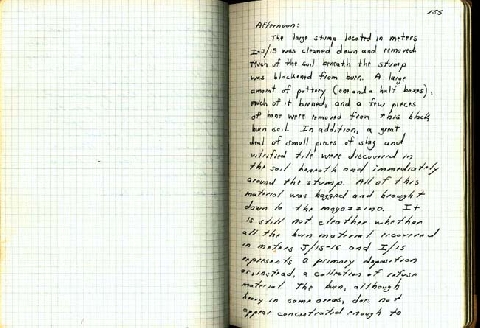 155
Afternoon:
The large stump located in meters
I-J/15 was cleaned down and removed.
Much of the soil beneath the stump
was blackened from burn. A large
amount of pottery (one and a half boxes),
much of it burned, and a few pieces
of bone were removed from this black
burn soil. In addition, a great
deal of small pieces of slag and
vitrified tile were discovered in
the soil beneath and immediately
around the stump. All of this
material was bagged and brought
down to the magazzino. It
is still not clear whether
all the burn material recovered
in meters J/15-16 and I/15
represents a primary deposition
or, instead, a collection of refuse
material. The burn, although
heavy in some areas, does not
appear concentrated enough to